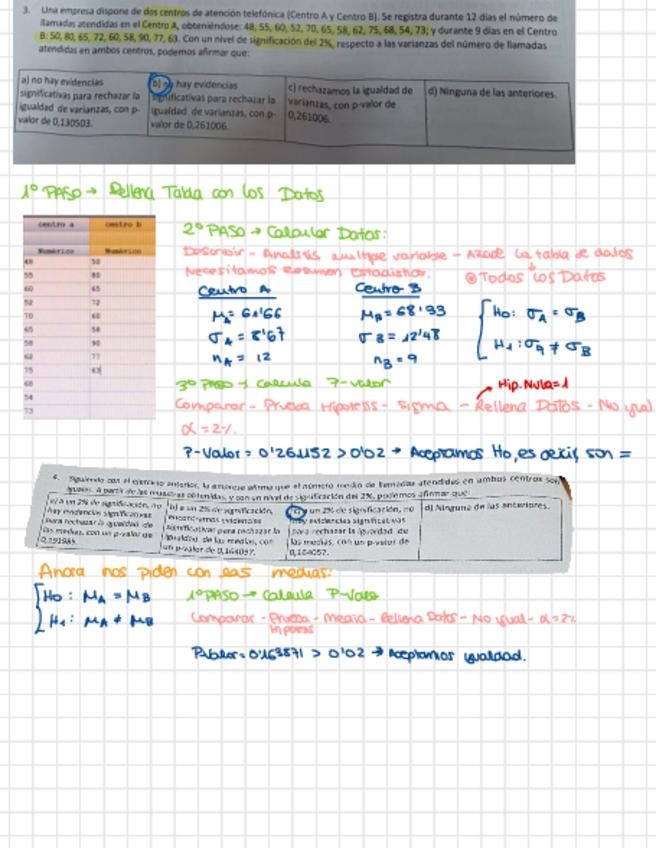 3. Una empresa dispone de dos centros de atención telefónica (Centro A y Centro B). Se registra durante 12 días el número de
llamadas atendidas en el Centro A, obteniéndose: 48, 55, 60, 52, 70, 65, 58, 62, 75, 68, 54, 73; y durante 9 días en el Centro
B: 50, 80, 65, 72, 60, 58, 90, 77, 63. Con un nivel de significación del 2%, respecto a las varianzas del número de llamadas
atendidas en ambos centros, podemos afirmar que:
a) no hay evidencias
significativas para rechazar la
igualdad de varianzas, con p-
valor de 0,130503.
b) no hay evidencias
significativas para rechazar la
igualdad de varianzas, con p-
valor de 0,261006.
c) rechazamos la igualdad de
varianzas, con p-valor de
0,261006.
d) Ninguna de las anteriores.
1º PASO → Rellena Tabla con los Datos
centro a centro b
Numérico Numérico
48 50
55 80
60 65
52 72
70 60
65 58
58 90
62 77
75 63
68
54
73
2º PASO → Calcular Datos:
Describir - Analisis multiple variable - Añade la tabla de datos
Necesitamos Resumen Estadistico.
Todos los Datos
Centro A
μA = 61'66
σA = 8'67
nA = 12
Centro B
μB = 68'33
σB = 12'48
nB = 9
H0: σA = σB
H1: σA ≠ σB
3º PASO → Calcula P-valor
Hip. Nula=1
Comparar - Prueba Hipotesis - Sigma - Rellena Datos - No igual
α = 2%
P-Valor = 0'261152 > 0'02 → Aceptamos Ho, es decir, son =
4. Siguiendo con el ejercicio anterior, la empresa afirma que el número medio de llamadas atendidas en ambos centros son
iguales. A partir de las muestras obtenidas, y con un nivel de significación del 2%, podemos afirmar que:
a) a un 2% de significación, no
hay evidencias significativas
para rechazar la igualdad de
las medias, con un p-valor de
b) a un 2% de significación,
encontramos evidencias
significativas para rechazar la
igualdad de las medias, con
un p-valor de 0,164057.
c) a un 2% de significación, no
hay evidencias significativas
para rechazar la igualdad de
las medias, con un p-valor de
0,164057.
d) Ninguna de las anteriores.
Ahora nos piden con las medias:
H0: μA = μB
H1: μA ≠ μB
1º PASO → Calcula P-Valor
Comparar - Prueba - Media - Rellena Datos - No igual - α = 2%
Hipotesis
P-Valor = 0'163871 > 0'02 → Aceptamos igualdad.